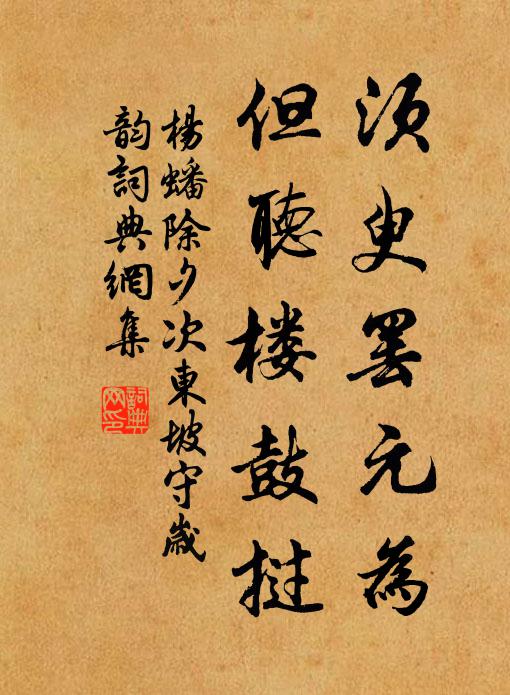 須臾罢元為
但聽楼鼓撾
楊蟠除夕次東坡守歲
韵詞典網集
詞典网印